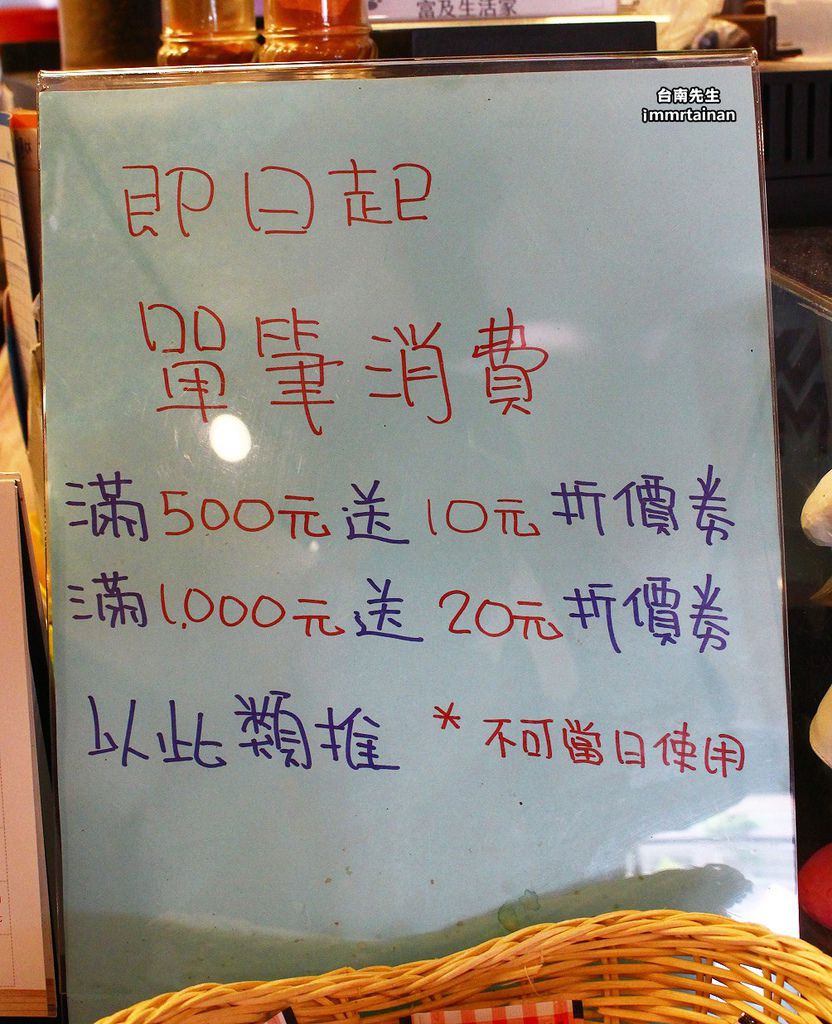 富及生活家
台南先生
immrtainan
即日起
單筆消費
滿500元送10元折價券
滿1,000元送20元折價券
以此類推 *不可當日使用